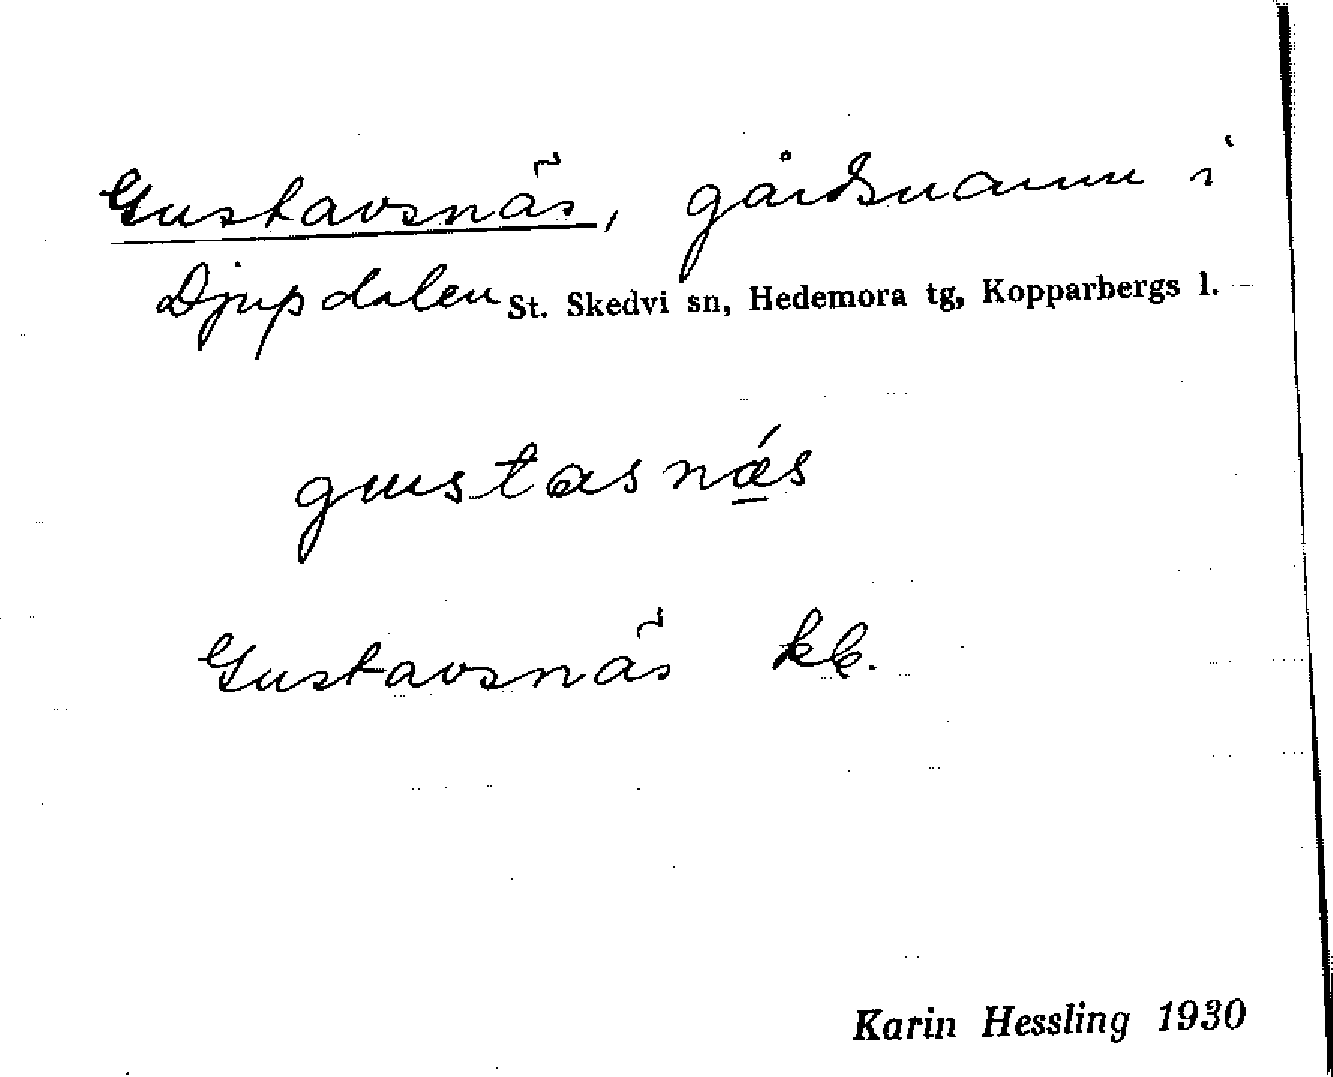 Gustavsnäs, gårdsnamn i
Djupdalen St. Skedvi sn, Hedemora tg, Kopparbergs l.
gustasnǽ̲s
Gustavsnäs kb.
Karin Hessling 1930